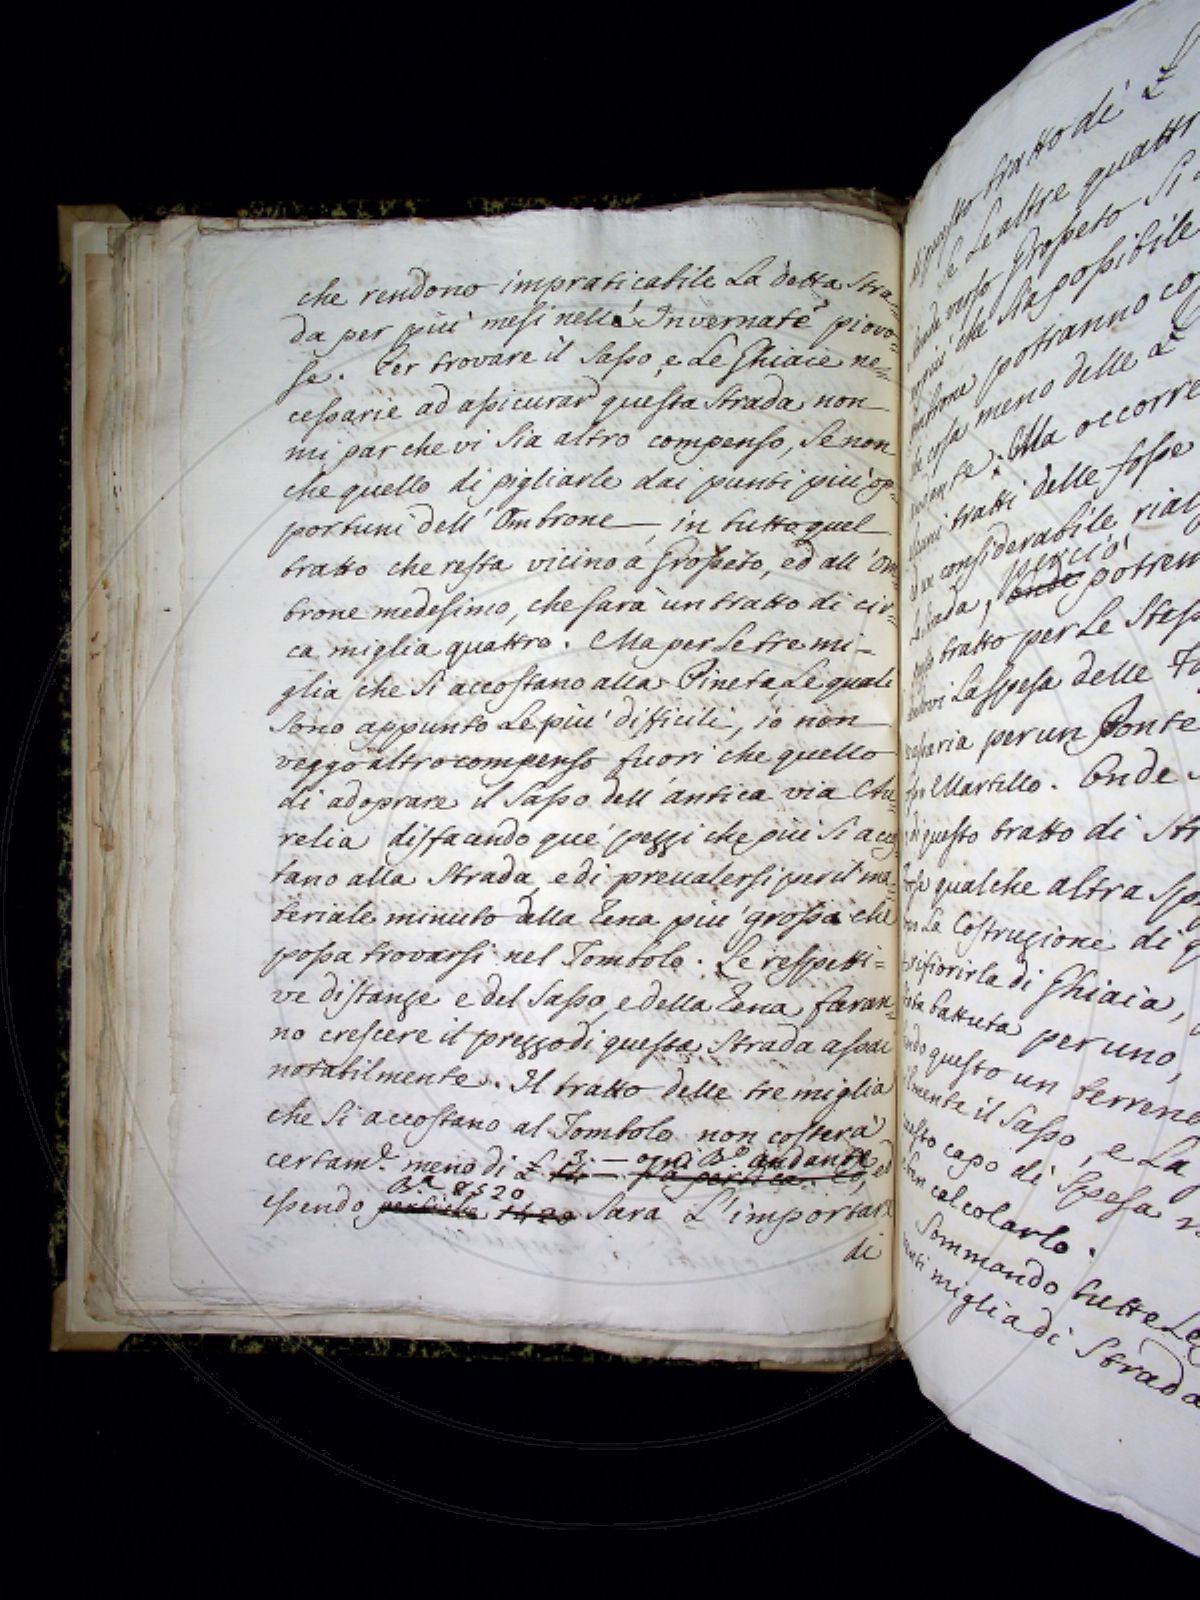 che rendono impraticabile La detta Stra=
da per piu' mesi nelle Invernate piovo=
se. Per trovare il Sasso, e Le Ghiaie ne=
cessarie ad assicurar questa Strada non
mi par che vi Sia altro compenso, Se non
che quello di pigliarle dai punti piu' op=
portuni dell' Ombrone in tutto quel
tratto che resta vicino a Grosseto, ed all' Om=
brone medesimo, che sarà un tratto di cir=
ca miglia quattro. Ma per Le tre mi=
glia che Si accostano alla Pineta Le quali
Sono appunto Le piu' difficili, io non
veggo altro compenso fuori che quello
di adoprare il Sasso dell' antica via Au=
relia disfacendo que' pezzi che piu Si acco=
tano alla Strada, e di prevalersi per il ma=
teriale minuto della Rena piu' grossa che
possa trovarsi nel Tombolo. Le respetti=
ve distanze e del Sasso, e della Rena faran=
no crescere il prezzo di questa Strada assai
notabilmente. Il tratto delle tre miglia
che Si accostano al Tombolo non costerà
3 — ogni B.o andante
certam.e meno di £ la pertica, ed
B.a 8520
essendo pertiche Sara L' importare
di
questo tratto di £
se Le altre quattr
verso Grosseto Si
che Sia possibile
potranno co
cosa meno delle £
Ma occorre
tratti delle fosse
considerabile rial
perciò
Strada, onde potrem
tratto per Le Stess
La Spesa delle
per un Ponte
Martello. Onde
di questo tratto di Str
qualche altra Sp
La Costruzione di
rifiorirla di Ghiaia,
battuta per uno,
questo un terreno
il Sasso, e La
capo di Spesa
calcolarlo.
Sommando tutte Le
miglia di Strada